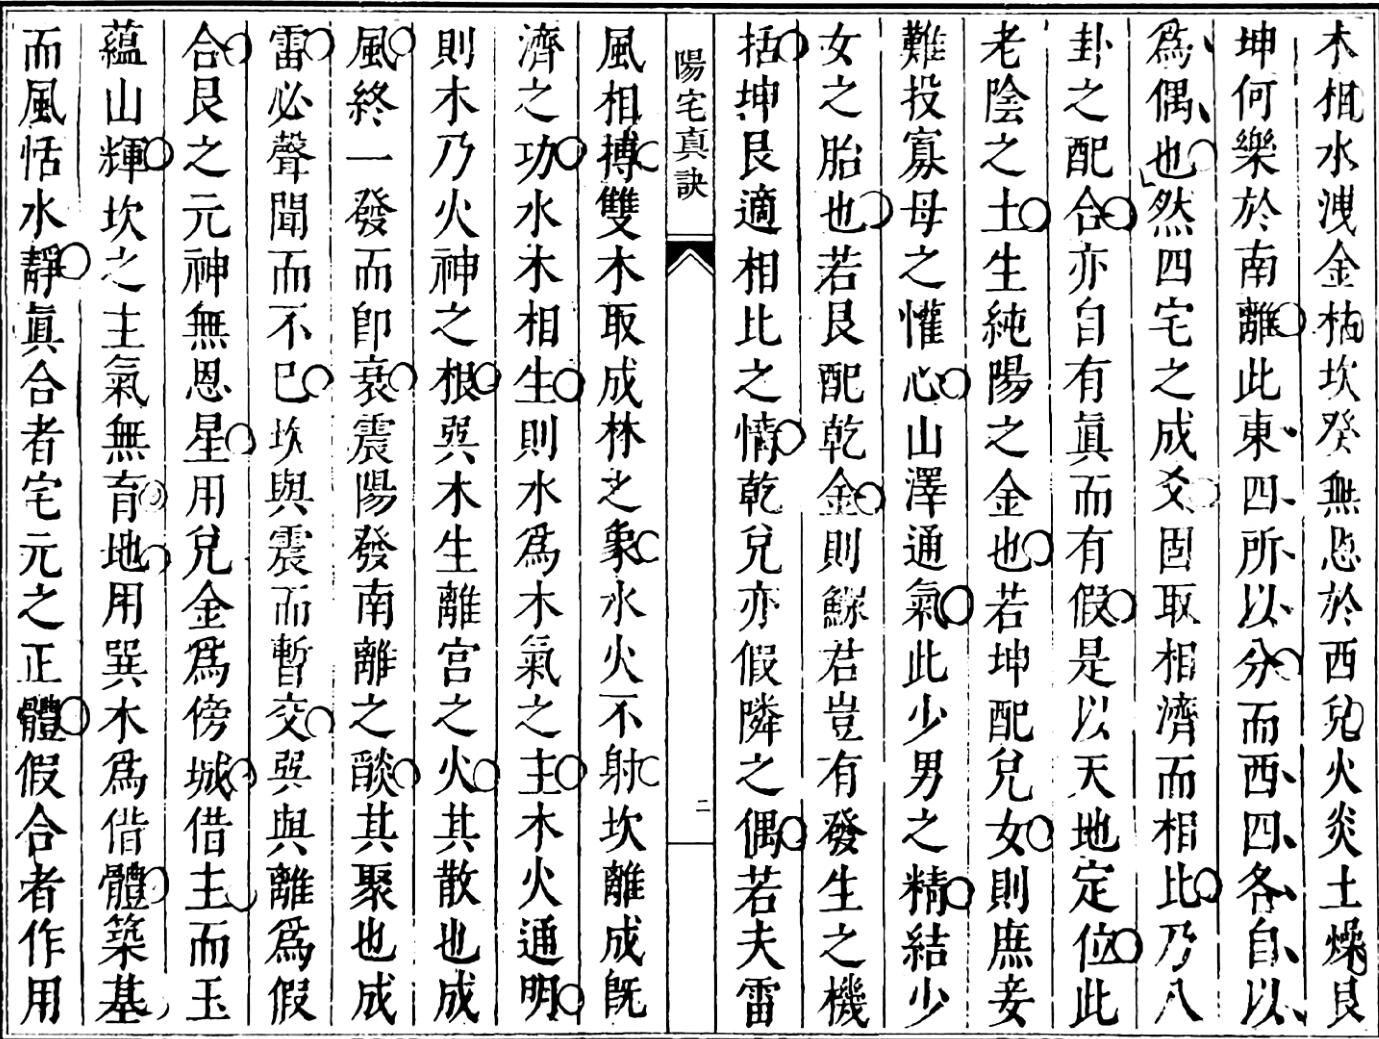 木相水洩金枯坎癸無恩於西兌火炎土燥艮
坤何樂於南離此東四所以分而西四各自以
爲偶也然四宅之成爻固取相濟而相比乃八
卦之配合亦自有眞而有假是以天地定位此
老陰之土生純陽之金也若坤配兌女則庶妾
難投寡母之懽心山澤通氣此少男之精結少
女之胎也若艮配乾金則鰥君豈有發生之機
括坤艮適相比之情乾兌亦假隣之偶若夫雷
陽宅真訣
二
風相搏雙木取成林之象水火不射坎離成旣
濟之功水木相生則水爲木氣之主木火通明
則木乃火神之根巽木生離宮之火其散也成
風終一發而卽衰震陽發南離之燄其聚也成
雷必聲聞而不巳坎與震而暫交巽與離爲假
合艮之元神無恩星用兌金爲傍城借主而玉
蘊山輝坎之主氣無育地用巽木爲偕體築基
而風恬水靜眞合者宅元之正體假合者作用